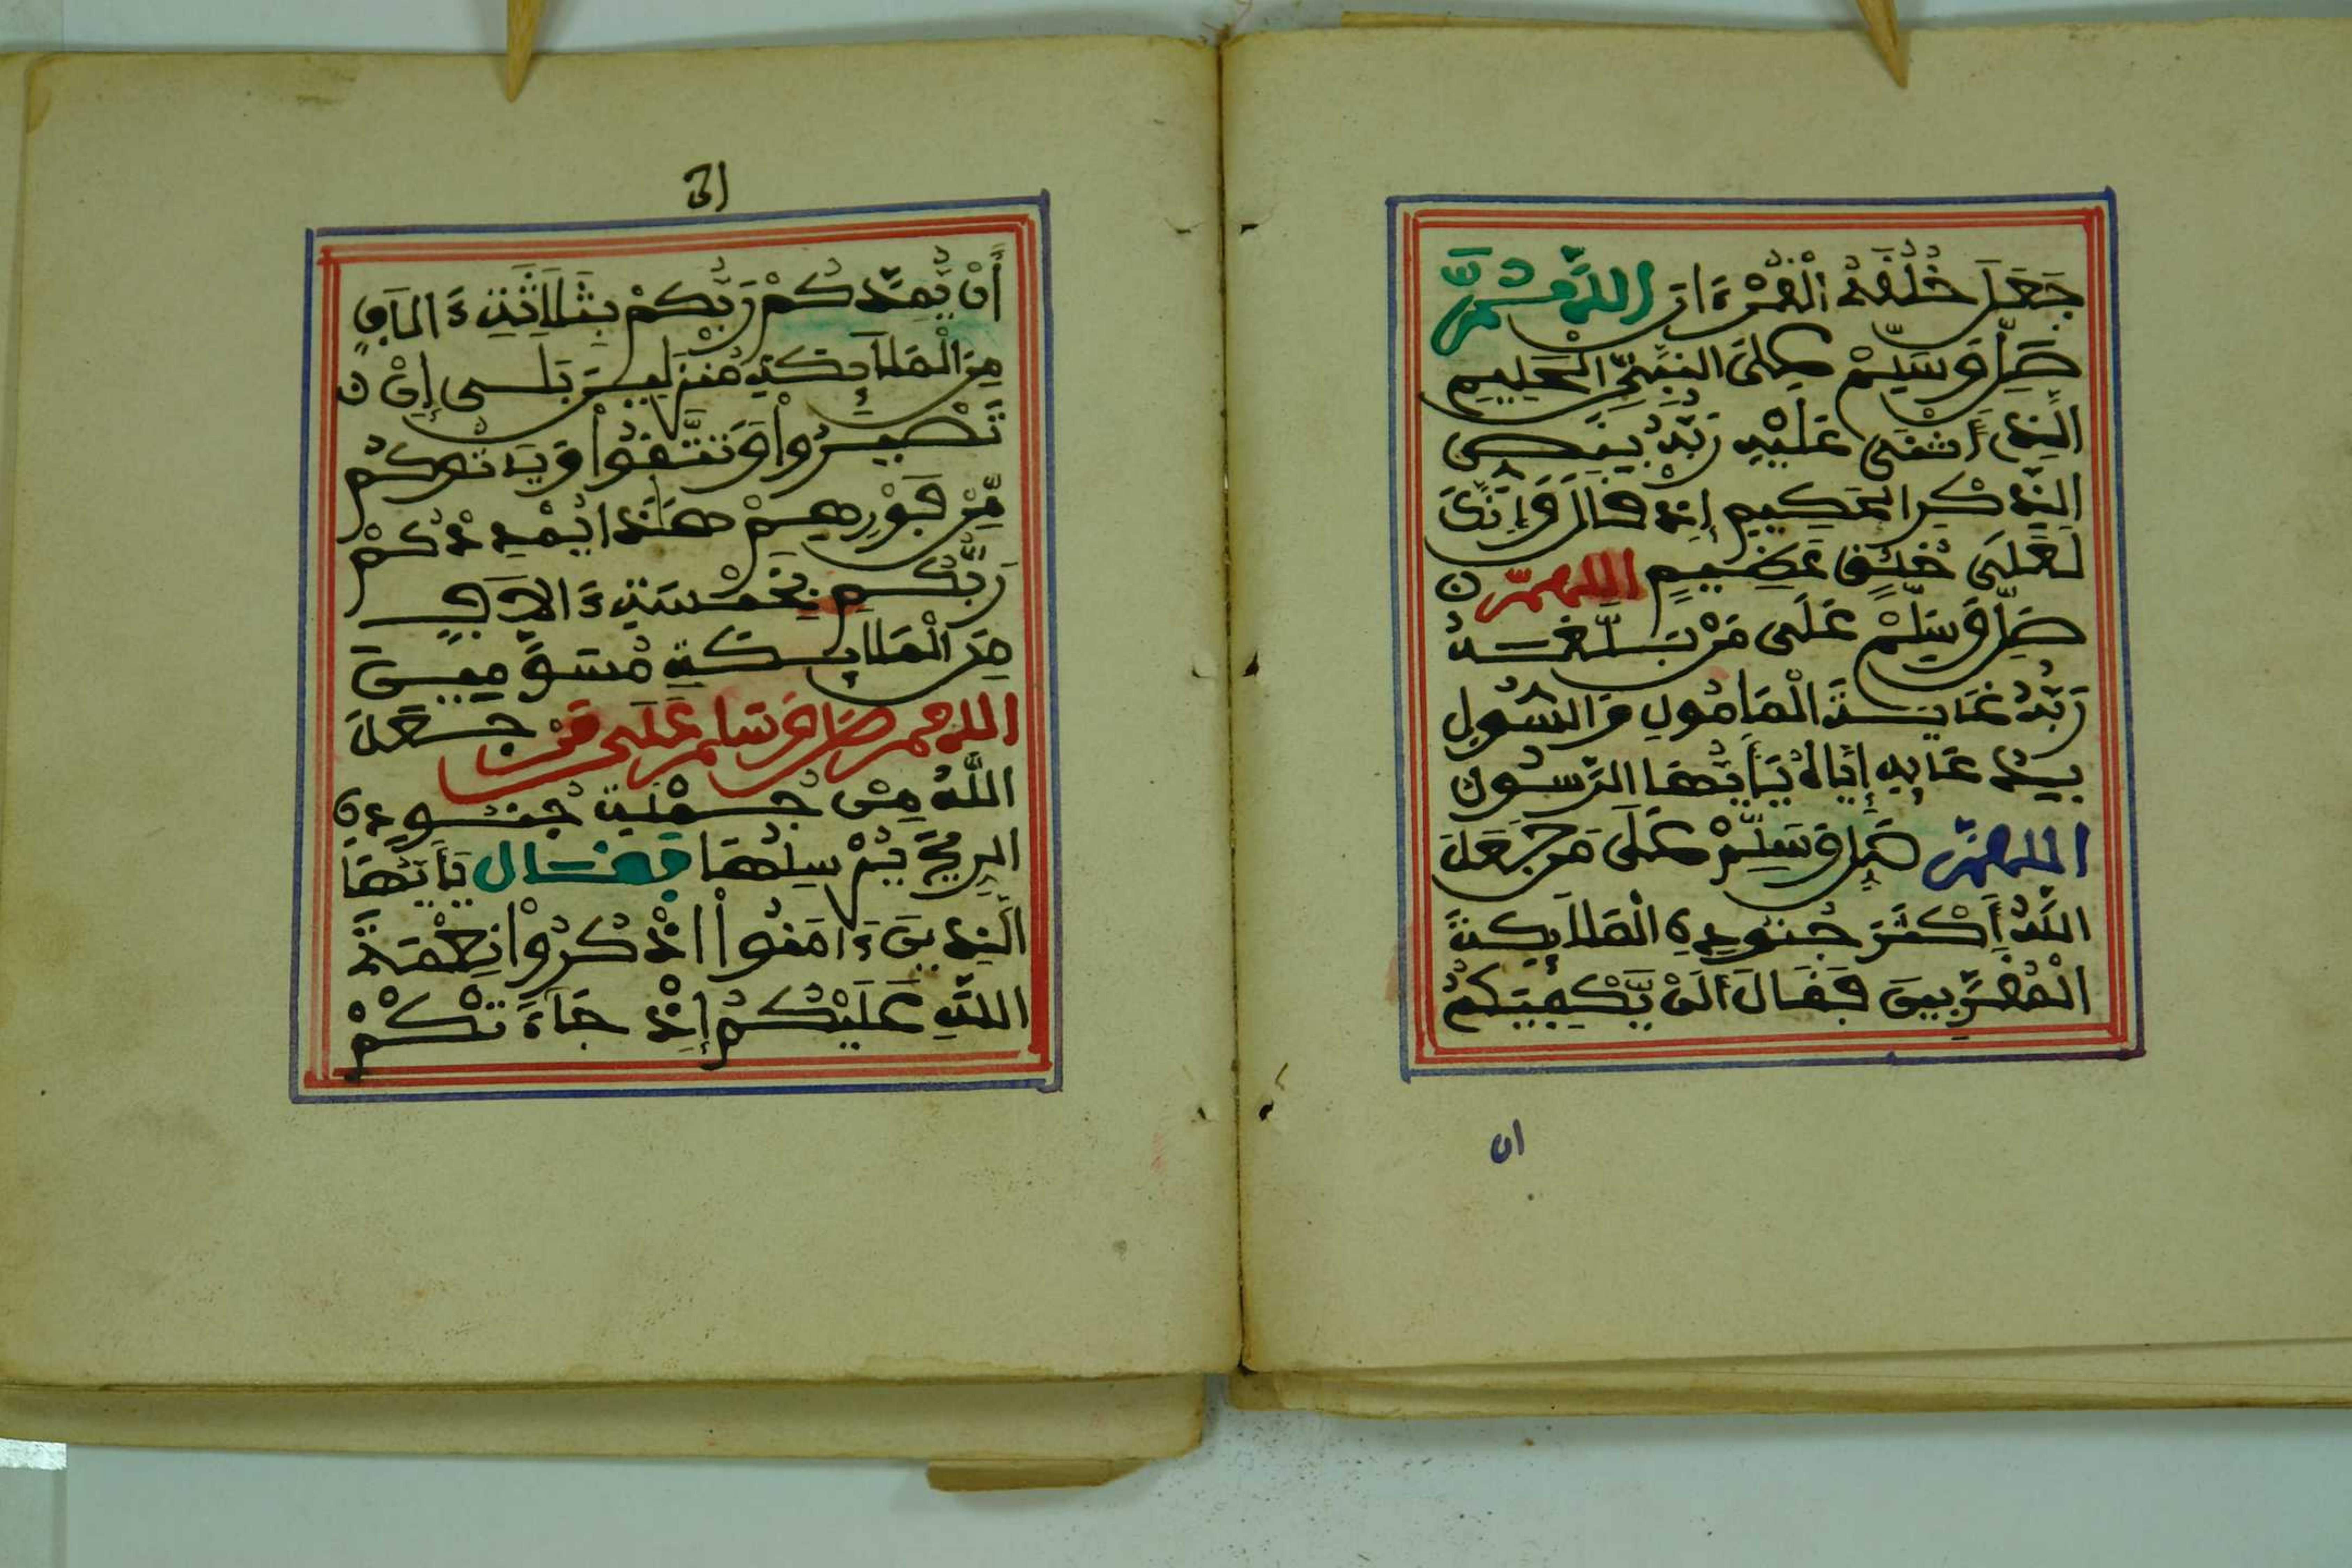 جَعَلَ خُلُقَهُ الْقُرْءَانَ اللَّهُمَّ
صَلِّ وَسَلِّمْ عَلَى النَّبِيِّ الْحَلِيمِ
الَّذِي أَثْنَى عَلَيْهِ رَبُّهُ بِنَصِّ
الذِّكْرِ الْحَكِيمِ إِذْ قَالَ وَإِنَّكَ
لَعَلَى خُلُقٍ عَظِيمٍ اللهمّ
صَلِّ وَسَلِّمْ عَلَى مَنْ بَلَّغَهُ
رَبُّهُ غَايَةَ الْمَأْمُولِ وَالسُّولِ
بِنِدَائِهِ إِيَّاهُ يَأَيُّهَا الرَّسُولُ
اللهمّ صَلِّ وَسَلِّمْ عَلَى مَن جَعَلَ
اللَّهُ أَكْثَرَ جُنُودِهِ الْمَلَائِكَةَ
الْمُقَرَّبِينَ فَقَالَ أَلَنْ يَّكْفِيَكُمُ
ان
31
أَنْ يُّمِدَّكُمْ رَبُّكُمْ بِثَلَاثَةِ ءَالَافٍ
مِنَ الْمَلَائِكَةِ مُنزَلِينَ بَلَى إِنْ
تَصْبِرُواْ وَتَتَّقُواْ وَيَاتُوكُمْ
مِّنْ فَوْرِهِمْ هَذَا يُمْدِدْكُمْ
رَبُّكُم بِخَمْسَةِ ءَالَافٍ
مِنَ الْمَلَائِكَةِ مُسَوَّمِينَ
اللهم صَلِّ وَسَلِّم عَلَى مَنْ جَعَلَ
اللَّهُ مِنْ جُمْلَةِ جُنُودِهِ
الرِّيحَ يُرْسِلُهَا فَقَالَ يَأَيُّهَا
الَّذِينَ ءَامَنُواْ اذْكُرُواْ نِعْمَةَ
اللَّهِ عَلَيْكُمْ إِذْ جَاءَتْكُمْ